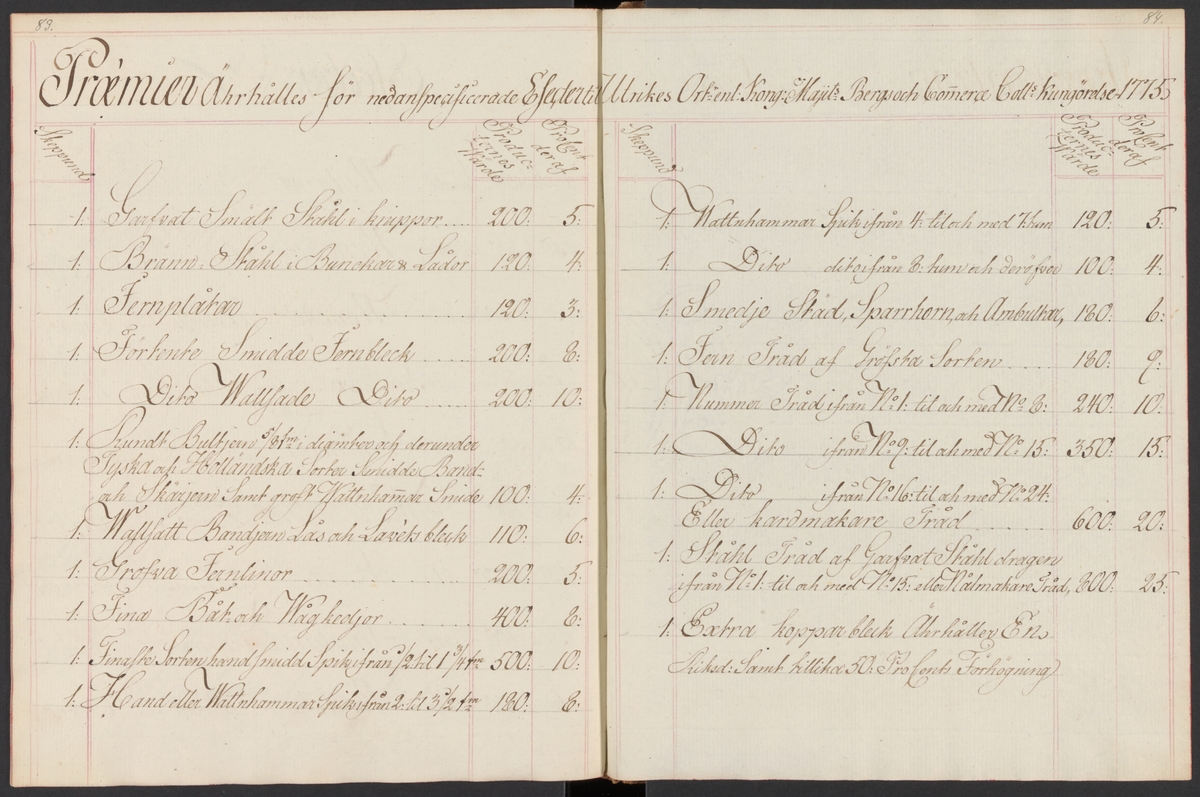 83.
Præmier Åhrhålles för nedanspecificerade Efecter til Utrikes Ort: enl: Kong: Maij:ts Bergs och Com̄erce Coll:s kungörelse 1775
Skeppund
Produc=
ternes
Wärde
ProCent
deraf
1: Garfvat Smält Ståhl i knippor .... 200: 5:
1: Bränn-Ståhl i Bunckar & Lådor 120: 4:
1: Jernplåtar .... 120: 3:
1: Förtente Smidde Jernbleck .... 200: 8:
1: Dito Wallsade Dito .... 200: 10:
1: Rundt Bultjern 5/8 tm i diamter och derunder
Tyska och Holländska Sorter Smidde Band=
och Skärjern Samt groft Wattnham̄ar Smide 100: 4:
1: Wallsatt Bandjern Lås och Lavets bleck 110: 6:
1: Grofva Jernlinor .... 200: 5:
1: Fina Båk och Wågkedjor .... 400: 8:
1: Finaste Sorten handsmidd Spik ifrån 1/2 til 1 3/4 tm 500: 10:
1: Hand eller Wattnhammar Spik ifrån 2: til 3 1/2 tm 180: 8:
84.
Skeppund
Produc=
ternes
Wärde
ProCent
deraf
1: Wattnhammar Spik ifrån 4: til och med 7: tum 120: 5:
1: Dito dito ifrån 8: tum och deröfver 100: 4:
1: Smedje Städ, Sparrhorn, och Ambultar, 180: 6:
1: Jern Tråd af Gröfsta Sorten .... 180: 9:
1: Nummer Tråd ifrån No 1: til och med No 8: 240: 10:
1: Dito ifrån No 9: til och med No 15: 350: 15:
1: Dito ifrån No 16: til och med No 24:
Eller kardmakare Tråd .... 600: 20:
1: Ståhl Tråd af Garfvat Ståhl dragen
ifrån No 1: til och med No 15: eller Nålmakare Tråd, 800: 25:
1: Extra koppar bleck Åhrhåller En
Riksd: Samt lillika 50: ProCents Förhögning